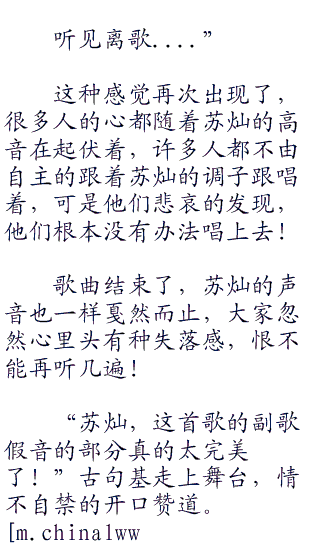 听见离歌....”
这种感觉再次出现了，
很多人的心都随着苏灿的高
音在起伏着，许多人都不由
自主的跟着苏灿的调子跟唱
着，可是他们悲哀的发现，
他们根本没有办法唱上去！
歌曲结束了，苏灿的声
音也一样戛然而止，大家忽
然心里头有种失落感，恨不
能再听几遍！
“苏灿，这首歌的副歌
假音的部分真的太完美
了！”古句基走上舞台，情
不自禁的开口赞道。
[m.china1ww